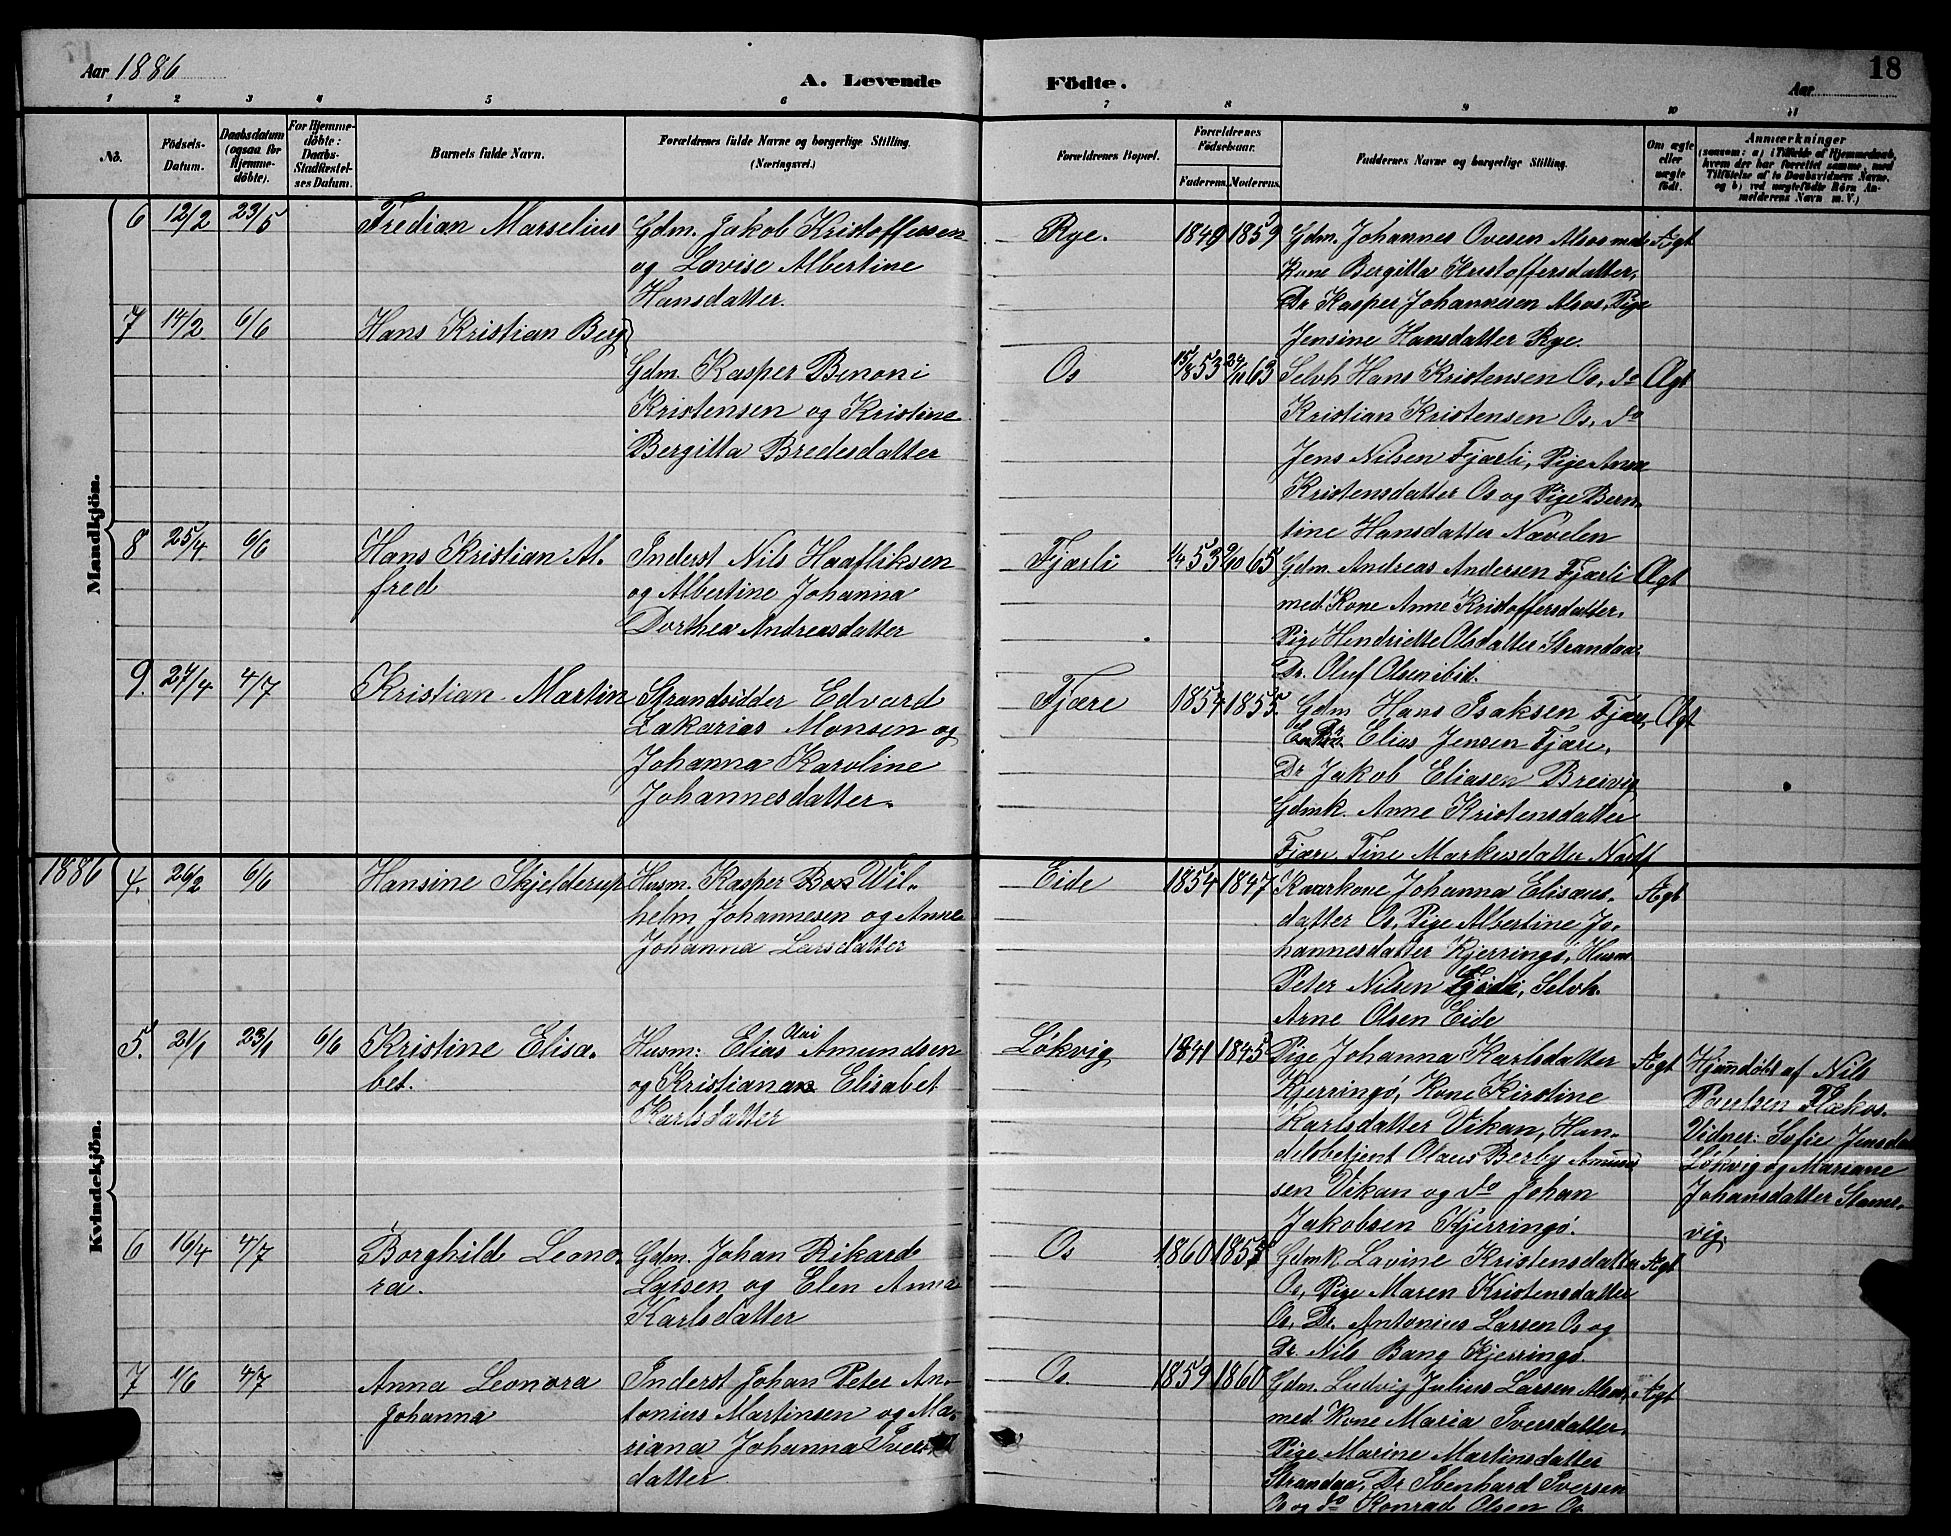 Aar 1886
A. Levende
Födte.
Aar
18
1 2 3 4 5 6 7 8 9 10 11
No.
Födsels-
Datum.
Daabsdatum
(ogsaa for
Hjemme-
döbte).
For Hjemme-
döbte:
Daabs-
Stadfæstel-
ses Datum.
Barnets fulde Navn.
Forældrenes fulde Navne og borgerlige Stilling.
(Næringsvei.)
Forældrenes Bopæl.
Forældrenes
Födselsaar.
Faderens. Moderens.
Faddernes Navne og borgerlige Stilling.
Om ægte
eller
uægte
født.
Anmærkninger
(saasom: a) i Tilfælde af Hjemmedaab,
hvem der har forrettet samme, med
Tilföielse af to Daabsvidners Navne,
og b) ved uægtefödte Börn An-
melderens Navn m. V.)
Mandkjön.
6 12/2 23/5
Fredian Marselius
Gdm. Jakob Kristoffersen
og Lovise Albertine
Hansdatter.
Rye.
1849 1859
Gdm. Johannes Ovesen Alsos med
Kone Bergitta Kristoffersdatter,
Dr. Kasper Johannesen Alsos, Pige
Jensine Hansdatter Rye.
Ægt
7 14/2 6/6
Hans Kristian Berg
Gdm. Kasper Benoni
Kristensen og Kristine
Bergitta Bredesdatter
Os
15/8 53 24/11 63
Selvh Hans Kristensen Os, do
Kristian Kristensen Os, do
Jens Nilsen Fjærli, Pige Anna
Kristensdatter Os og Pige Bern-
tine Hansdatter Nævelen
Ægt
8 25/4 6/6
Hans Kristian Al-
fred
Inderst Nils Haafliksen
og Albertine Johanna
Dorthea Andreasdatter
Fjærli
1/4 53 9/10 65
Gdm Andreas Andersen Fjærli
med Kone Anne Kristoffersdatter,
Pige Hendriette Olsdatter Strandaa,
Dr. Oluf Olsen ibid.
Ægt
9. 27/4 4/7
Kristian Martin
Strandsidder Edvard
Zakarias Monsen og
Johanna Karoline
Johannesdatter.
Fjære
1854 1855
Gdm Hans Isaksen Fjære,
Elias Jensen Fjære,
Dr Jakob Eliasen Breivig
Gdmk. Anne Kristensdatter
Fjære, Tine Markusdatter
Ægt
1886
Kvindekjön.
4. 26/2 6/6
Hansine Skjelderup
Husm. Kasper Wil-
helm Johannesen og Anne
Johanna Larsdatter
Eide
1854 1847
Kaarkone Johanna Elisæus-
datter Os, Pige Albertine Jo-
hannesdatter Kjerringö, Husm.
Peter Nilsen Eide, Selvh.
Arne Olsen Eide
Ægt
5. 21/1 23/1 6/6
Kristine Elisa-
bet.
Olai
Husm: Elias Amundsen
og Kristiana Elisabet
Karlsdatter
Løkvig
1841 1845
Pige Johanna Karlsdatter
Kjerringö, Kone Kirstine
Karlsdatter Vikan, Han-
delsbetjent Olaus Berby Amund
sen Vikan og do Johan
Jakobsen Kjerringö.
Ægt
Hjemdöbt af Nils
Paulsen Flækos.
Vidner: Sofie Jensdtr
Løkvig og Mariane
Johansdatter Stams-
vig.
6 16/4 4/7
Borghild Leono-
ra.
Gdm. Johan Rikard
Larsen og Elen Anna
Karlsdatter
Os
1860 1855
Gdmk Lavine Kristensdatter
Os, Pige Maren Kristensdatter
Os, Dr. Antonius Larsen Os og
Dr. Nils Bang Kjerringö.
Ægt
7 1/6 4/7
Anna Leonora
Johanna
Inderst Johan Peter An-
tonius Martinsen og Ma-
riana Johanna Ivers
datter
Os.
1859 1860
Gdm. Ludvig Julius Larsen Alsos,
med Kone Maria Iversdatter,
Pige Marine Martinsdatter
Strandaa, Dr Ibenhard Iversen
Os og do Konrad Olsen Os
Ægt